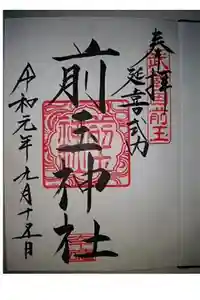 奉拝
延喜式内
前玉神社
令和元年九月十五日